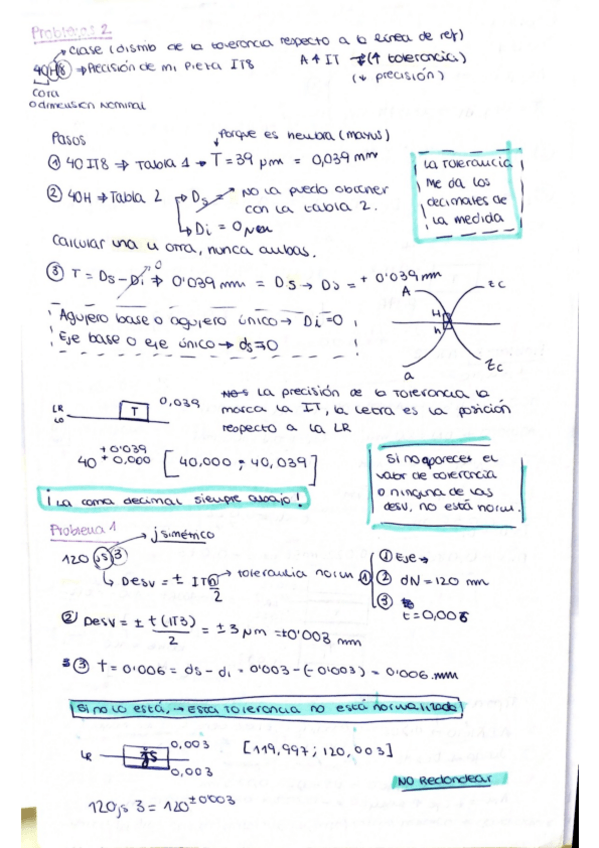 Problema 2
clase (distrib de la tolerancia respecto a la línea de ref)
40H8 ⇒ Precisión de mi pieza IT8
A ↑ IT → (↑ tolerancia)
(↓ precisión)
Cota
o dimensión nominal
Pasos
Porque es neutra (mayus)
① 40 IT8 ⇒ Tabla 1 → T = 39 μm = 0,039 mm
② 40H ⇒ Tabla 2 → Ds → No la puedo obtener
con la tabla 2.
→ Di = 0
Calcular una u otra, nunca ambas.
La tolerancia
me da los
decimales de
la medida
③ T = Ds - Di ⇒ 0'039 mm = Ds → Ds = + 0'039 mm
0
A
zc
H
h
a
zc
Agujero base o agujero único → Di = 0
Eje base o eje único → ds = 0
LR
T
0,039
La precisión de la tolerancia la
marca la IT, la letra es la posición
respecto a la LR
40 +0'039 +0,000 [40,000 ; 40,039]
¡La coma decimal siempre abajo!
Si no apareces el
valor de tolerancia
o ninguna de las
desv, no está norm.
Problema 1
→ j simétrico
120 js 3
↳ Desv = ± ITn/2 → tolerancia norm
① Eje →
② dN = 120 mm
③
t = 0,006
② Desv = ± t (IT3)/2 = ± 3 μm = ±0'003 mm
③ t = 0'006 = ds - di = 0'003 - (-0'003) = 0'006 mm
Si no lo está, → Esta tolerancia no está normalizada
LR
js
0,003
0,003
[119,997 ; 120,003]
NO Redondear
120 js 3 = 120 ±0'003